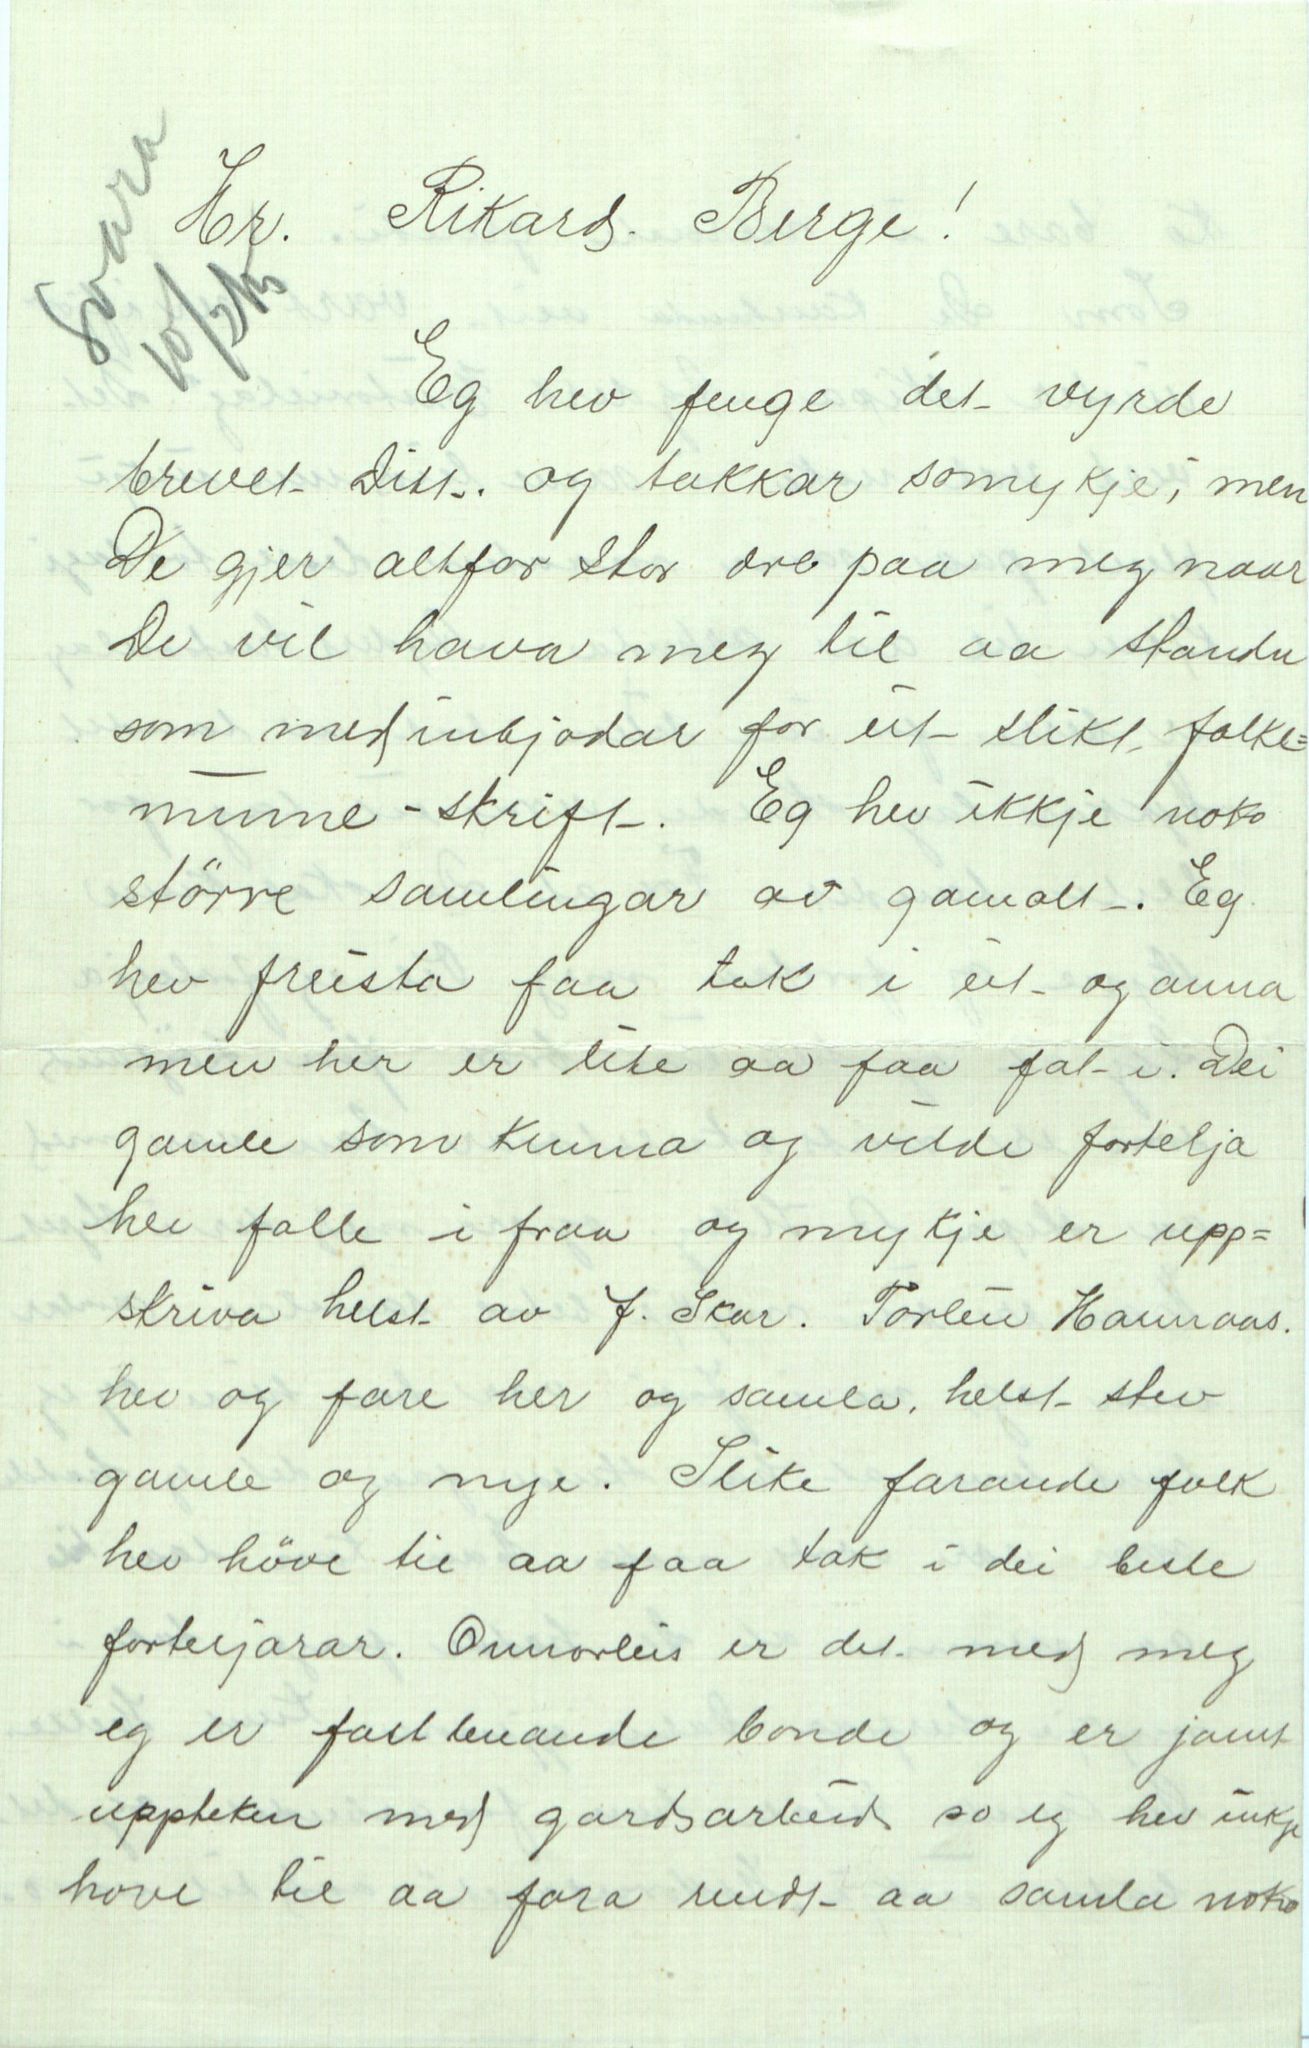 Svara
10/2 15
Hr. Rikard Berge!
Eg hev fenge det vyrde
brevet Ditt. og takkar somykje, men
De gjer altfor stor ære paa meg naar
De vil hava meg til aa standa
som med inbjodar for eit slikt folke=
minne-skrift. Eg hev ikkje noko
större samlingar av gamalt. Eg
hev freista faa tak i eit og anna
men her er lite aa faa fat i. Dei
gamle som kunna og vilde fortelja
hev falle i fraa og mykje er upp=
skriva helst av J. Skar. Torleiv Hannaas.
hev og fare her og samla, helst stev
gamle og nye. Slike farande folk
hev höve til aa faa tak i dei beste
forteljarar. Onnorleis er det med meg
eg er fastbuande bonde og er jamt
uppteken med gardsarbeid so eg hev inkje
hove til aa fara rundt aa samla noko